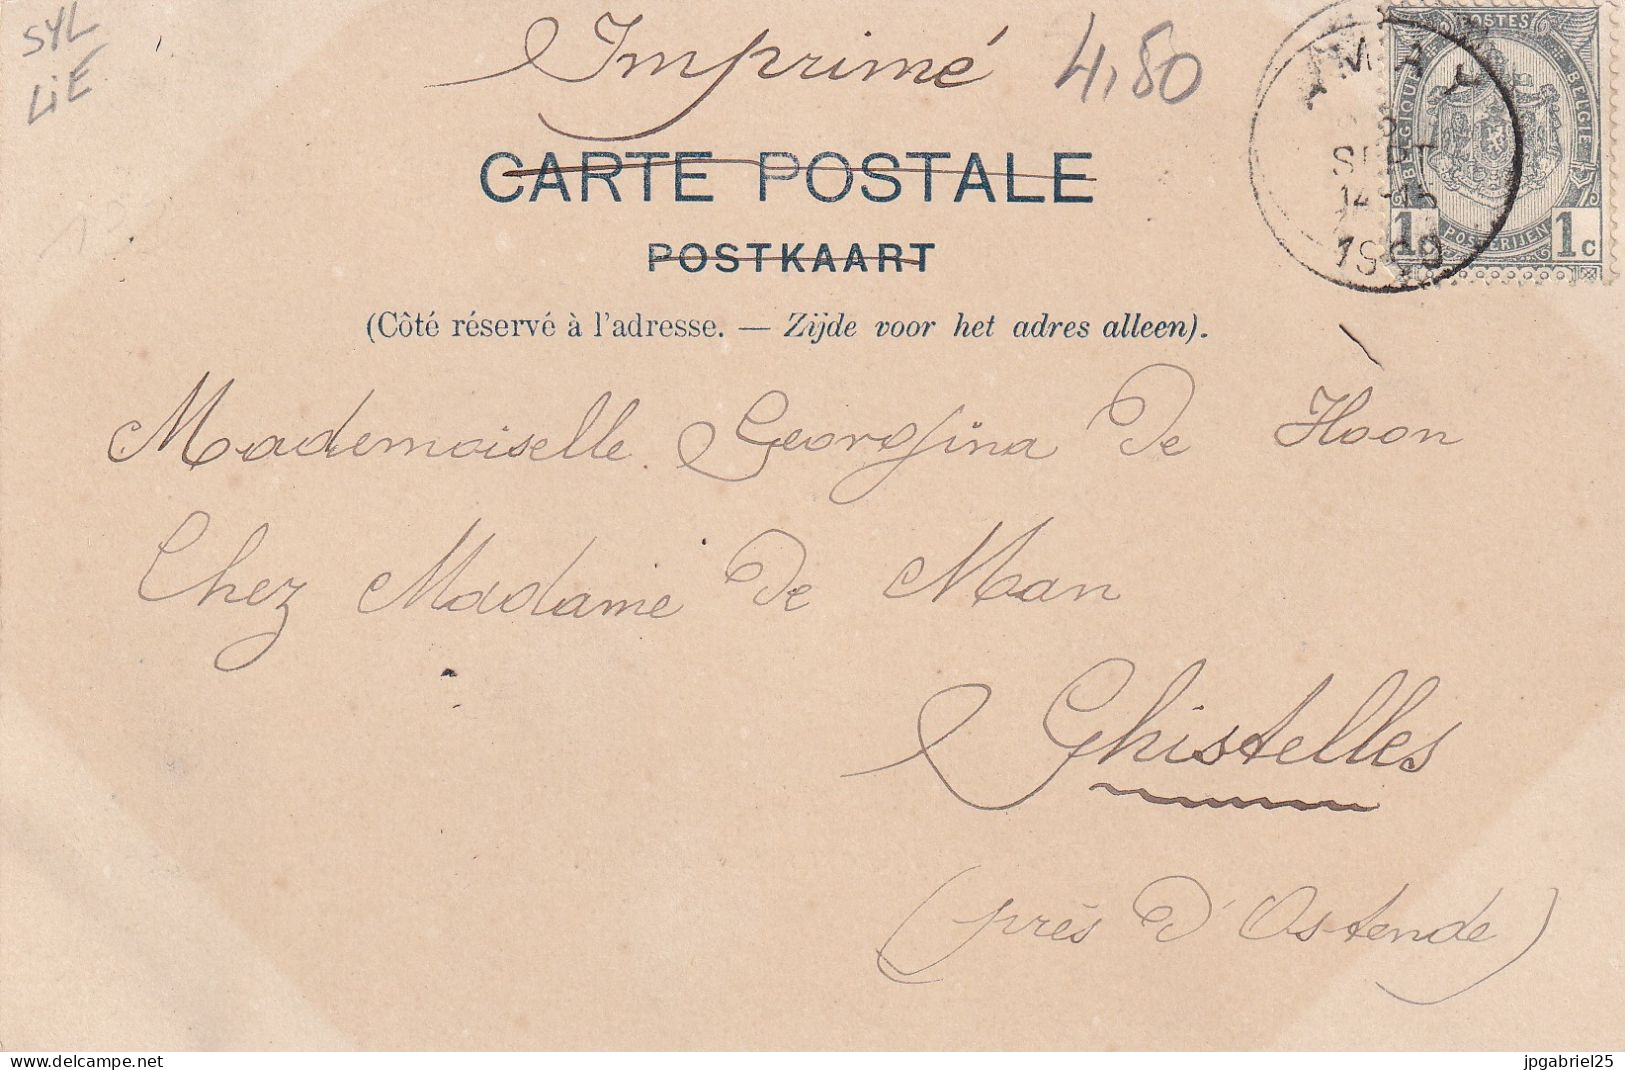 SYL
LiE
Imprimé 4,50
CARTE POSTALE
POSTKAART
(Côté réservé à l'adresse. — Zijde voor het adres alleen).
POSTES
BELGIQUE
BELGIE
POSTERIJEN
1 1c
AMAY
SEPT
14-15
Mademoiselle Georgina De Hoon
Chez Madame De Man
Ghistelles
(près d'Ostende)
www.delcampe.net
jpgabriel25